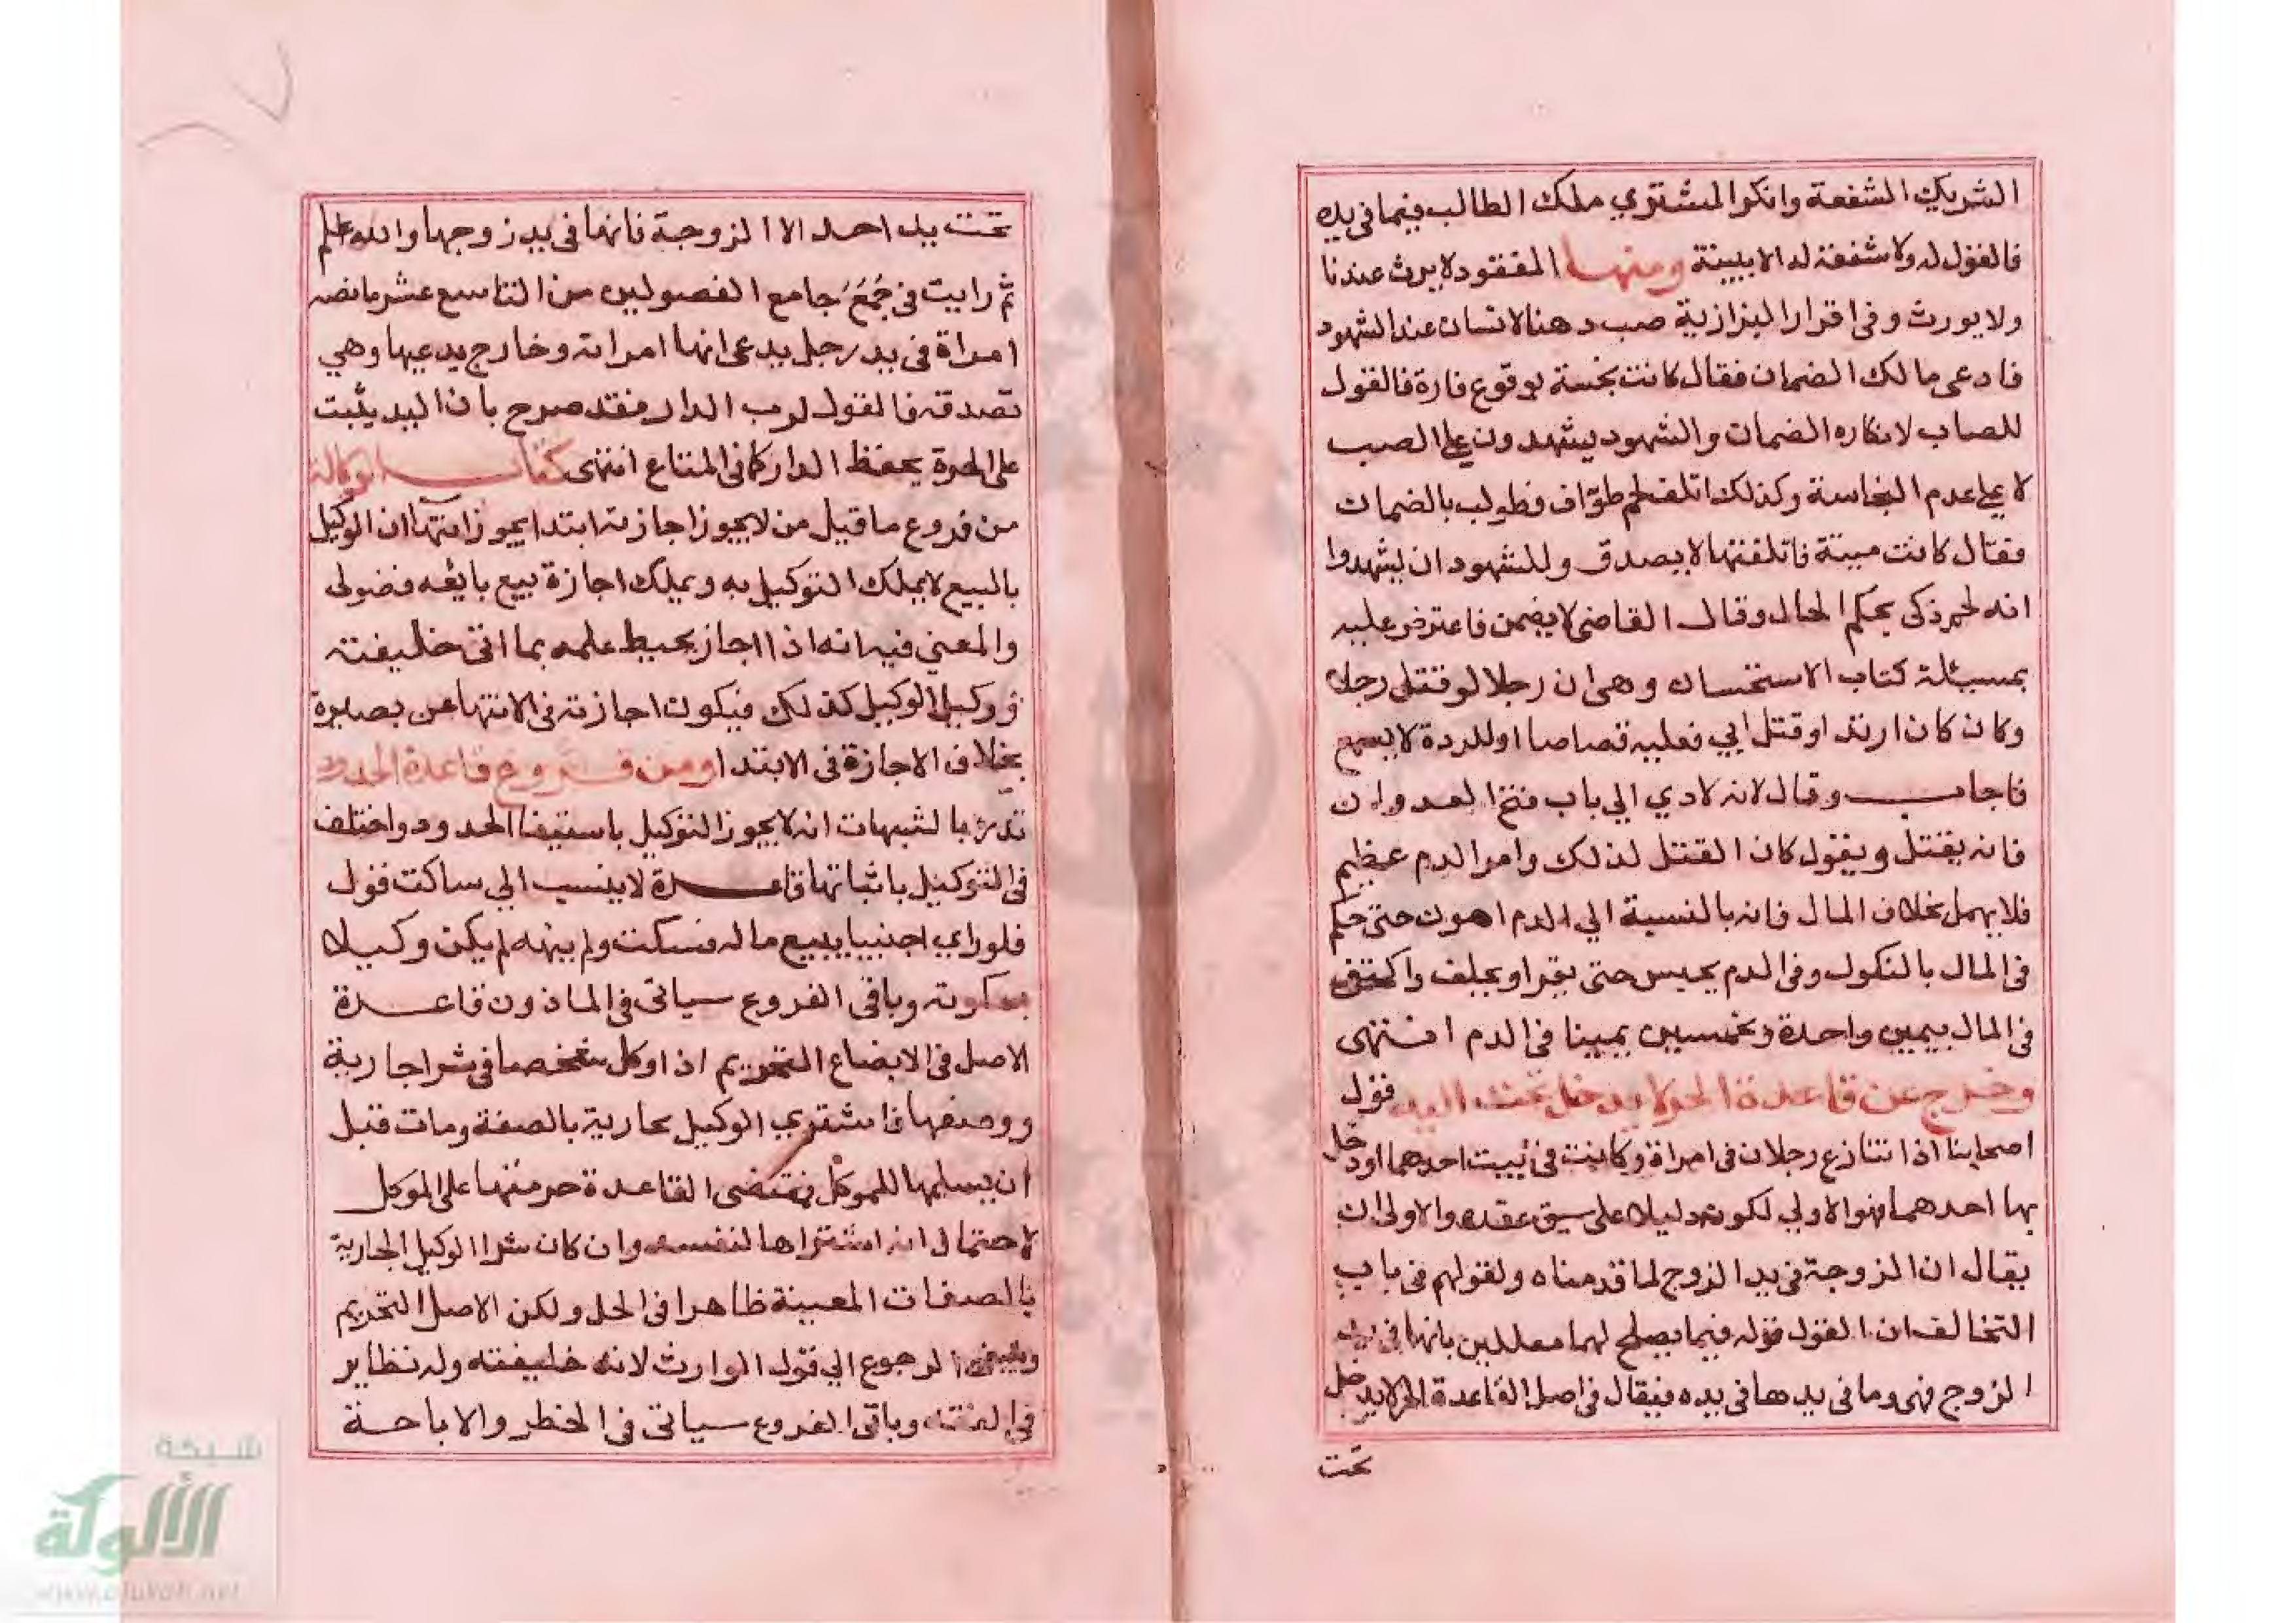 الشريك الشفعة وانكر المشتري ملك الطالب فيما في يده
فالقول له ولا شفعة له الا ببينة ومنها المفقود لا يرث عندنا
ولا يورث وفى اقرار البزازية صب دهنا لانسان عند الشهود
فادعى مالك الضمان فقال كانت نجسة لوقوع فارة فالقول
للصاب لانكاره الضمان والشهود يشهدون على الصب
لا على عدم النجاسة وكذلك اتلف لحم طواف فطولب بالضمان
فقال كانت ميتة فاتلفتها لا يصدق وللشهود ان يشهدوا
انه لحم ذكى بحكم الحال وقال القاضى لا يضمن فاعترض عليه
بمسئلة كتاب الاستحسان وهى ان رجلا لو قتل رجلا
وكان كان ارتد او قتل ابي فعليه قصاصا او للردة لا يسمع
فاجاب وقال لانه لادي الي باب فتح العدوان
فانه يقتل ويقول كان القتل لذلك وامر الدم عظيم
فلا يهمل بخلاف المال فانه بالنسبة الي الدم اهون حتى حكم
فى المال بالنكول وفى الدم يحبس حتى يقر او يحلف واكتفى
فى المال بيمين واحدة وبخمسين يمينا فى الدم انتهى
وخرج عن قاعدة الحر لا يدخل تحت اليد قول
اصحابنا اذا تنازع رجلان فى امراة وكانت فى بيت احدهما او دخل
بها احدهما فهو الاولي لكونه دليلا على سبق عقده والاولى ان
يقال ان الزوجة فى يد الزوج لما قدمناه ولقولهم فى باب
التحالف ان القول قوله فيما يصلح لهما معللين بانها فى يد
الزوج فهى وما فى يدها فى يده فيقال فى اصل القاعدة الحر لا يدخل
تحت
تحت يد احد الا الزوجة فانها فى يد زوجها والله اعلم
ثم رايت فى جُمَعَ جامع الفصولين من التاسع عشر ما نصه
امراة فى يد رجل يدعى انها امراته وخارج يدعيها وهي
تصدقه فالقول لرب الدار فقد صرح بان اليد يثبت
على الحرة بحفظ الدار كما فى المتاع انتهى كتاب الوكالة
من فروع ما قيل من لا يجوز اجازته ابتدا يجوز انتهآ ان الوكيل
بالبيع لا يملك التوكيل به ويملك اجازة بيع بائعه فضولى
والمعني فيه انه اذا اجاز يحيط علمه بما اتى خليفته
ووكيل الوكيل كذلك فيكون اجازته فى الانتها عن بصيرة
بخلاف الاجازة فى الابتدا ومن فروع قاعدة الحدود
تدرئ بالشبهات انه لا يجوز التوكيل باستيفا الحدود واختلف
فى التوكيل باثباتها قاعدة لا ينسب الي ساكت قول
فلو راي اجنبيا يبيع ماله فسكت ولم ينهه لم يكن وكيلا
بسكوته وباقى الفروع سياتى فى الماذون قاعدة
الاصل فى الابضاع التحريم اذا وكل شخصا فى شرا جارية
ووصفها فاشتري الوكيل جارية بالصفة ومات قبل
ان يسلمها للموكل فمقتضى القاعدة حرمتها على الموكل
لاحتمال انه اشتراها لنفسه وان كان شرا الوكيل الجارية
بالصفات المعينة ظاهرا فى الحل ولكن الاصل التحريم
وينبغى الرجوع الي قول الوارث لانه خليفته وله نظاير
فى الفقه وباقى الفروع سياتى فى الحظر والاباحة
شبكة
الألوكة
www.alukah.net